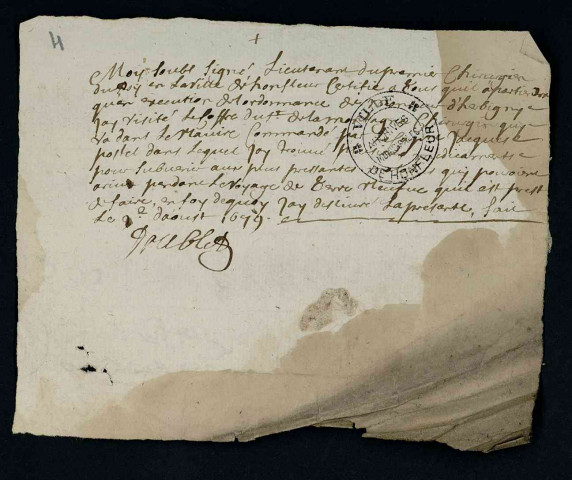 H
+
Moy soubs signé Lieutenant du premier Chirurgien
du Roy en la ville de honfleur Certifie a tous quil apartiendra
quen execution de lordonnance de d'habigny
Jay visité le coffre du sr. delamo Chirurgien qui
va dans le Navire Commandé p Jacques
postel dans lequel Jay trouvé medicaments
pour subvenir aux plus pressantes qui pouroient
ariver pendant le voyage de Terre Neufve quil est prest
de faire, en foy de quoy Jay delivré la presente, fait
Le 2e. daoust 1679.
Doublet